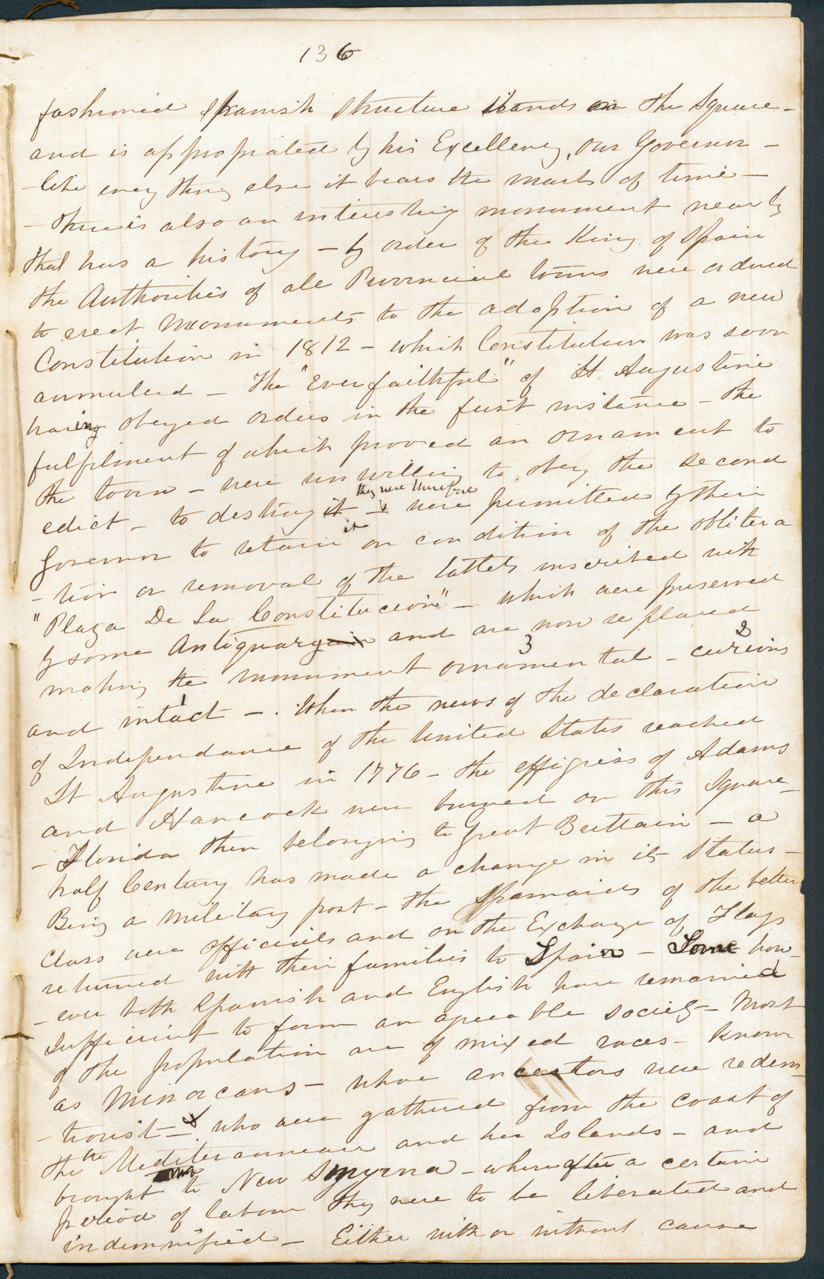 136
fashioned Spanish structure stands on the Square -
and is appropriated by his Excellency, our Governor -
- like every thing else it bears the marks of time -
- there is also an interesting monument near by
that has a history - by order of the King of Spain
the Authorities of all Provincial towns were ordered
to erect Monuments to the adoption of a new
Constitution in 1812 - which Constitution was soon
annulled - The "Ever faithful" of St Augustine
having obeyed orders in the first instance - the
fulfilment of which proved an ornament to
the town - were unwilling to obey the second
edict - to destroy it - they were therefore were permitted by their
Governor to retain it on condition of the oblitera
- tion or removal of the tablets inscribed with
"Plaza De La Constitucion" - which were preserved
by some Antiquary and are now replaced
making the monument ornamental 3 - curious 2
and intact 1 - . When the news of the declaration
of Independance of the United States reached
St Augustine in 1776 - the effigies of Adams
and Hancock were burned on this Square -
- Florida then belonging to Great Brittain - a
half Century has made a change in its status -
Being a military post - the Spaniards of the better
class were officials and on the Exchange of Flags
returned with their families to Spain - Some how-
- ever both Spanish and English have remained
sufficient to form an agreeable society - Most
of the population are of mixed races - known
as Minorcans - whose ancestors were redem
- tionist - & who were gathered from the coast of
the Mediterranean and her Islands - and
brought to New Smyrna - where after a certain
period of labour they were to be liberated and
indemnified - Either with or without cause